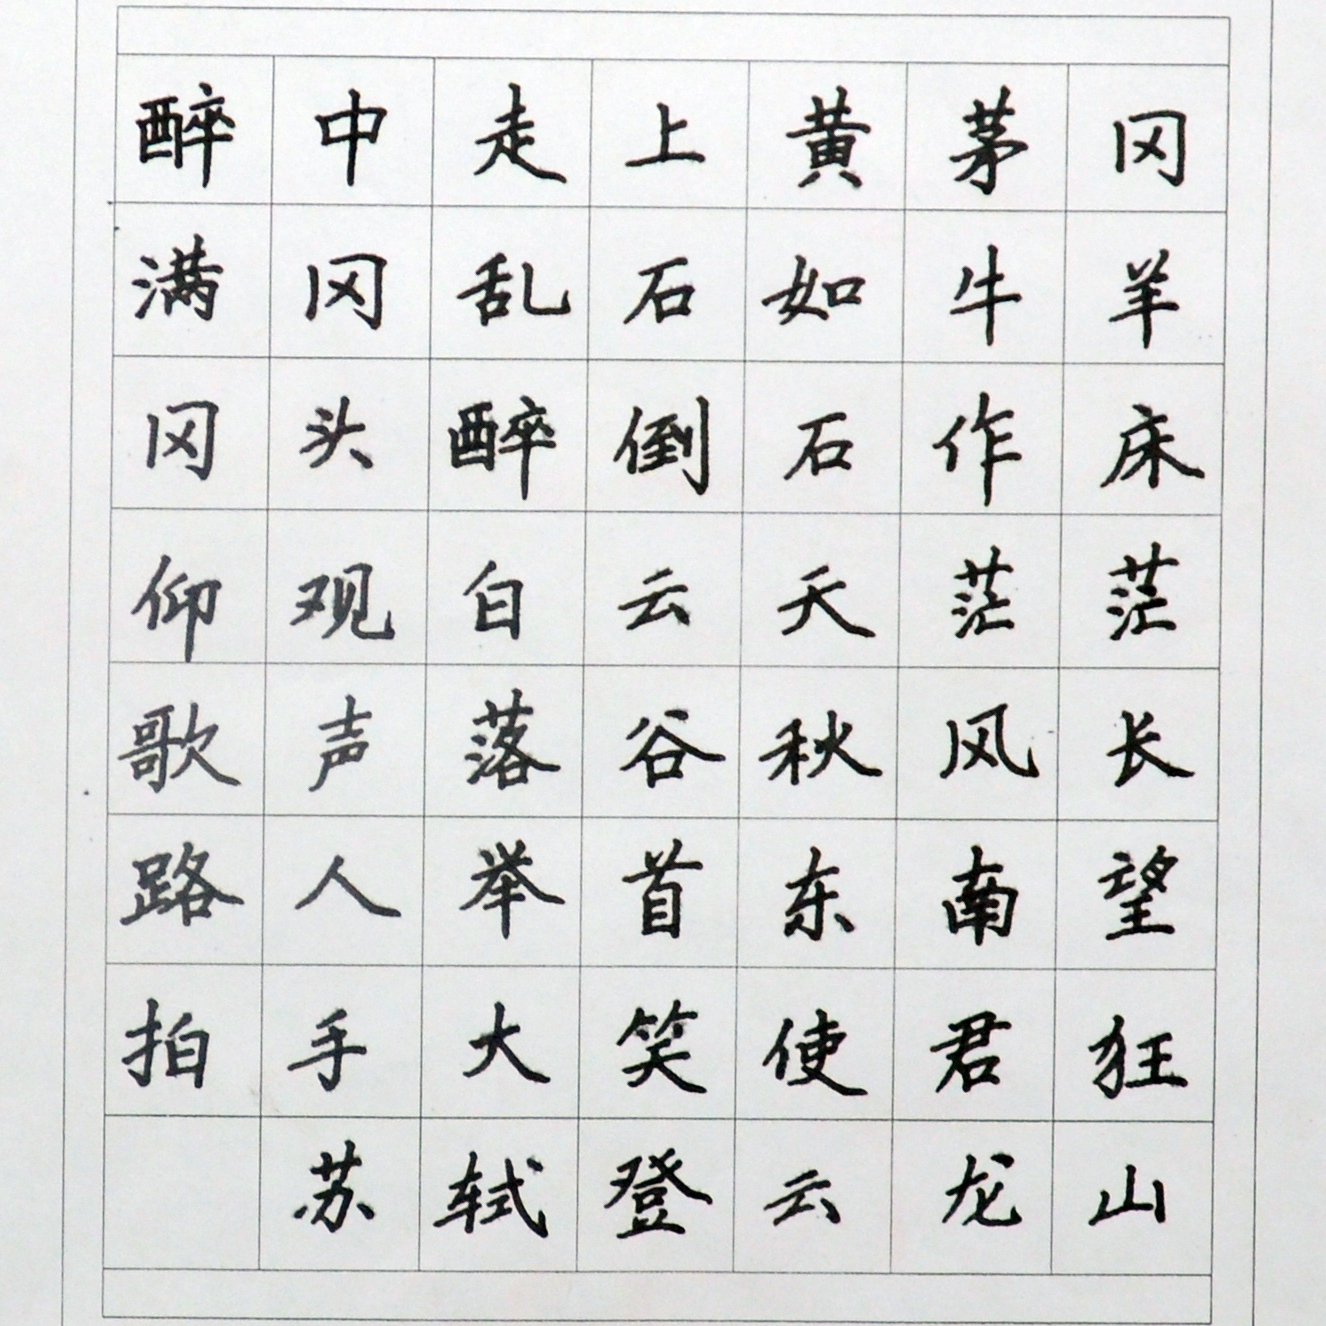 醉中走上黄茅冈
满冈乱石如牛羊
冈头醉倒石作床
仰观白云天茫茫
歌声落谷秋风长
路人举首东南望
拍手大笑使君狂
苏轼登云龙山